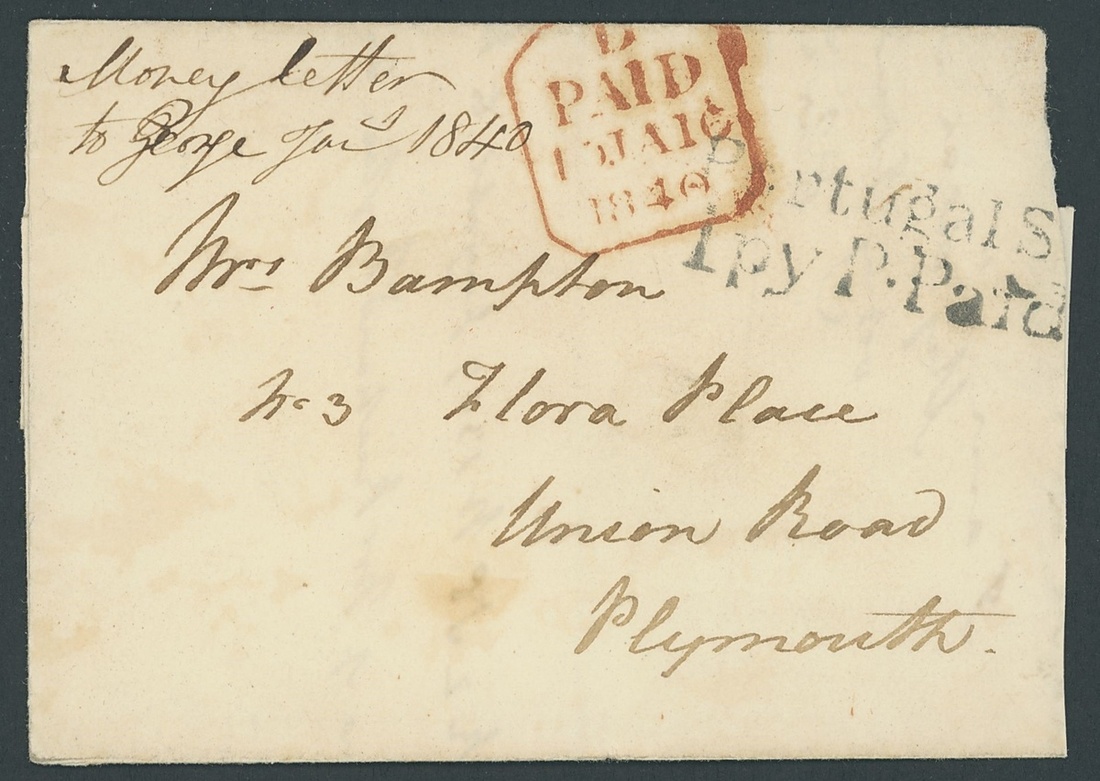 Money letter
to George Jan 1840
D
PAID
10 JA 10
1840
Portugal S
1py P. Paid
Mrs Bampton
No 3 Flora Place
Union Road
Plymouth.